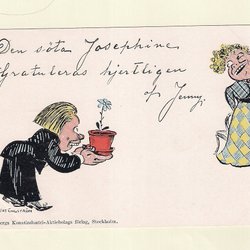 Den söta Josephine
Gratuleras hjertligen
af Jenny.
bergs Konstindustri-Aktiebolags förlag, Stockholm.